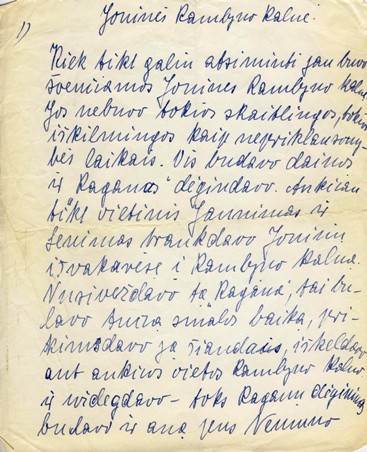 Joninės Rambyno kalne.
1)
Kiek tikt galiu atsiminti jau buvo
švenčiamos Jonines Rambyno kalne.
Jos nebuvo tokios skaitlingos, tokios
iškilmingos kaip nepriklausomy-
bės laikais. Vis budavo dainos
ir „Raganas" degindavo. Anksčiau
tikt vietinis Jaunimas ir
senimas traukdavo Joninių
išvakarėse į Rambyno kalną.
Nusiveždavo tą „Raganą", tai bu-
davo sena smalos bačka, pri-
kimšdavo ją šiaudais, iškeldavo
ant aukštos vietos Rambyno kalno
ir uždegdavo - toks Raganų deginimas
budavo ir aną pus Nemuno